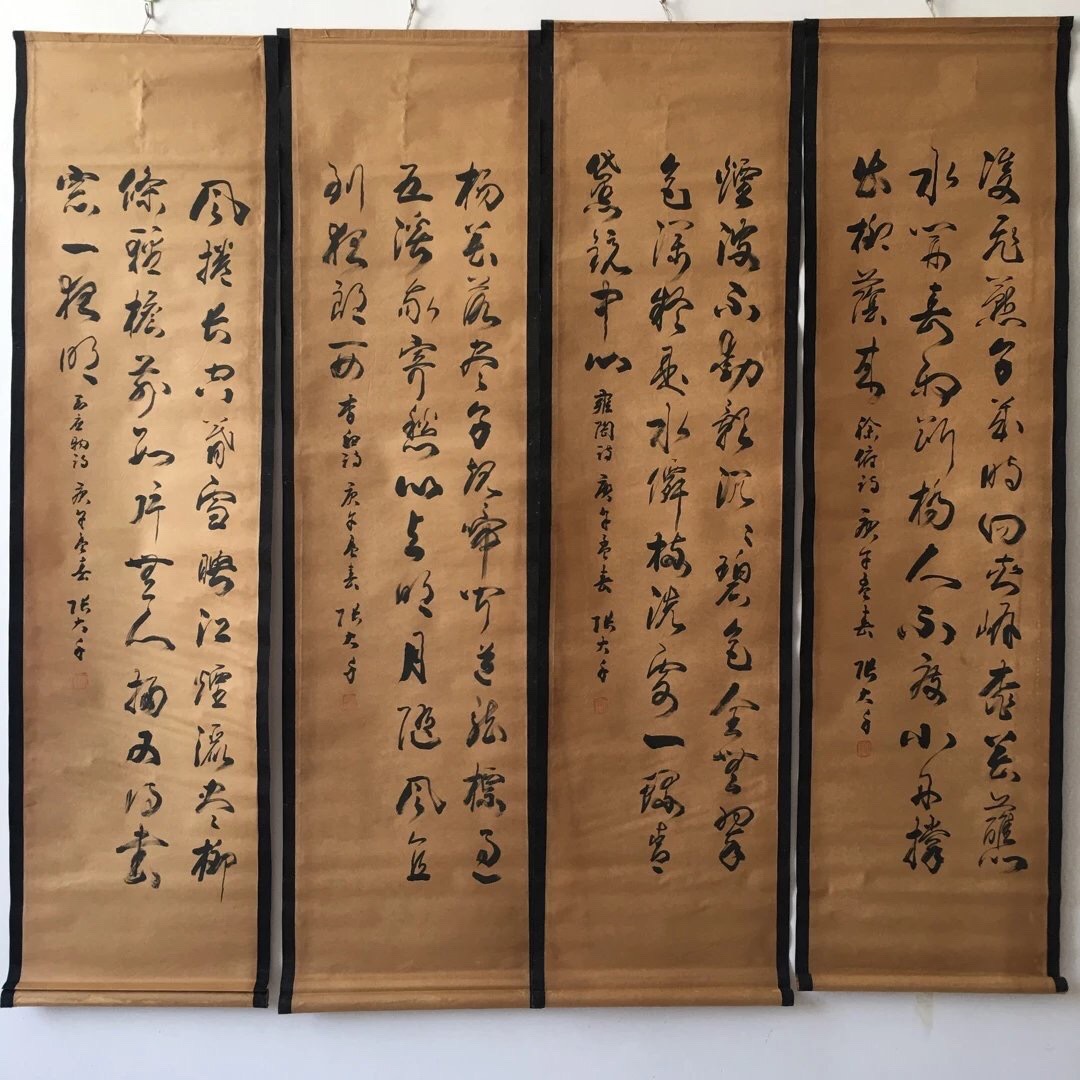 雙飛燕子幾時回夾岸桃花蘸
水開春雨斷橋人不度小舟撐
出柳蔭來 徐俯詩 庚午孟春 張大千
煙波不動影沉〻碧色全無翠
色深疑是水僊梳洗處一螺青
黛鏡中心 雍陶詩 庚午孟春 張大千
楊花落盡子規啼聞道龍標過
五溪我寄愁心與明月隨風直
到夜郎西 李白詩 庚午孟春 張大千
風捲長空暮雪晴江煙盡柳
條輕檐前數片無人掃又得書
窓一夜明 詩 庚午孟春 張大千